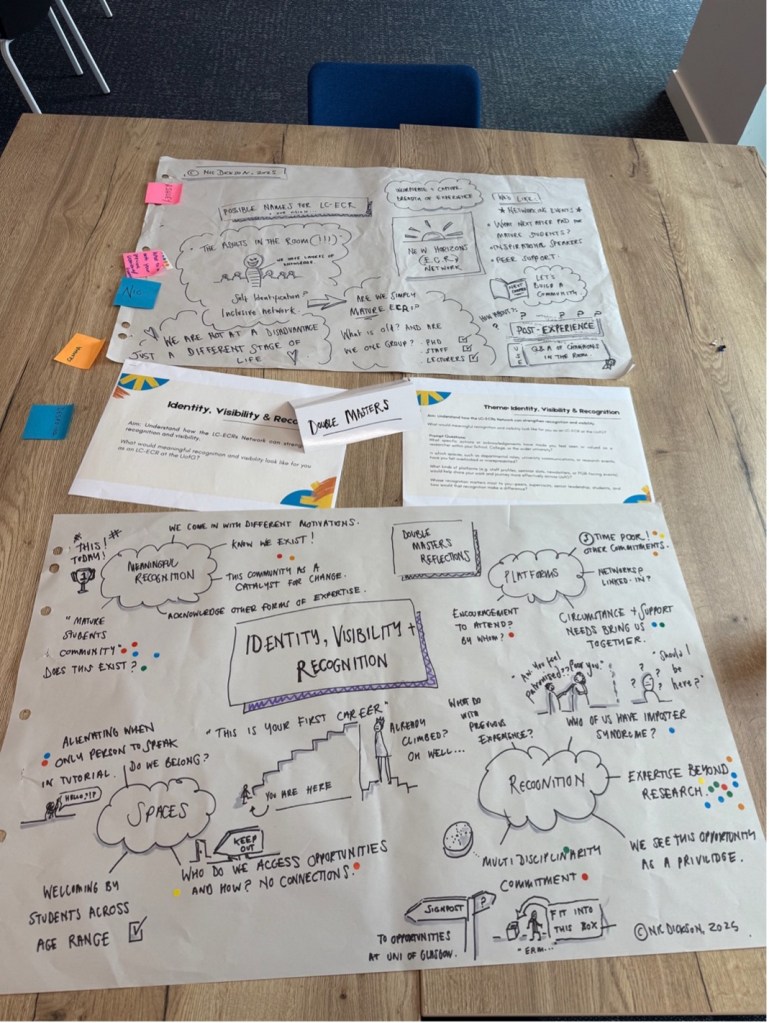 © NIC DICKSON, 2025
POSIBLE NAMES FOR LC-ECR
"THE ADULTS IN THE ROOM (!!!)"
Self Identification?
Inclusive network.
ARE WE SIMPLY
MATURE ECR's?
WE ARE NOT AT A DISADVANTAGE
JUST A DIFFERENT STAGE OF
LIFE
What is old? AND ARE
WE ONE GROUP?
- PHD
STAFF
LECTURERS
BREADTH OF EXPERIENCE
NEW HORIZONS
(E.C.R.)
NETWORK
* NETWORKING EVENTS *
• WHAT NEXT AFTER PHD
MATURE STUDENTS?
• INSPIRATIONAL SPEAKERS
• PEER SUPPORT.
LET'S
BUILD A
COMMUNITY.
HOW ABOUT?
POST-EXPERIENCE
IN THE ROOM
NIC
Identity, Visibility &
Aim: Understand how the LC-ECRs Network can
recognition and visibility.
What would meaningful recognition and visibility look like for you
as an LC-ECR at the UofG?
DOUBLE MASTERS
Theme: Identity, Visibility & Recognition
Aim: Understand how the LC-ECRs Network can strengthen recognition and visibility.
* THIS! *
TODAY!
WE COME IN WITH DIFFERENT MOTIVATIONS.
MEANINGFUL
RECOGNITION
KNOW WE EXIST!
THIS COMMUNITY AS A
CATALYST FOR CHANGE.
ACKNOWLEDGE OTHER FORMS OF EXPERTISE.
"MATURE
STUDENTS
COMMUNITY"
DOES THIS EXIST?
DOUBLE
MASTERS
REFLECTIONS
IDENTITY, VISIBILITY +
RECOGNITION
PLATFORMS
TIME POOR!
OTHER COMMITMENTS.
NETWORKS?
LINKED-IN?
ENCOURAGEMENT
TO ATTEND?
BY WHOM?
CIRCUMSTANCE + SUPPORT
NEEDS BRING US
TOGETHER.
ALIENATING WHEN
ONLY PERSON TO SPEAK
IN TUTORIAL. DO WE BELONG?
HELLO,!?
SPACES
WELCOMING BY
STUDENTS ACROSS
AGE RANGE
KEEP
OUT
WHO DO WE ACCESS OPPORTUNITIES
AND HOW? NO CONNECTIONS.
"THIS IS YOUR FIRST CAREER"
YOU ARE HERE
ALREADY
CLIMBED?
OH WELL...
WHAT DO
WITH
PREVIOUS
EXPERIENCE?
patronised?? Poor you."
"Should I
be
here?"
WHO OF US HAVE IMPOSTER
SYNDROME?
RECOGNITION
EXPERTISE BEYOND
RESEARCH.
WE SEE THIS OPPORTUNITY
AS A PRIVILIDGE.
MULTI DISCIPLINARITY
COMMITMENT
SIGNPOST
?
TO OPPORTUNITIES
AT UNI OF GLASGOW.
FIT INTO
THIS BOX
"ERM..."
© NIC DICKSON, 2025